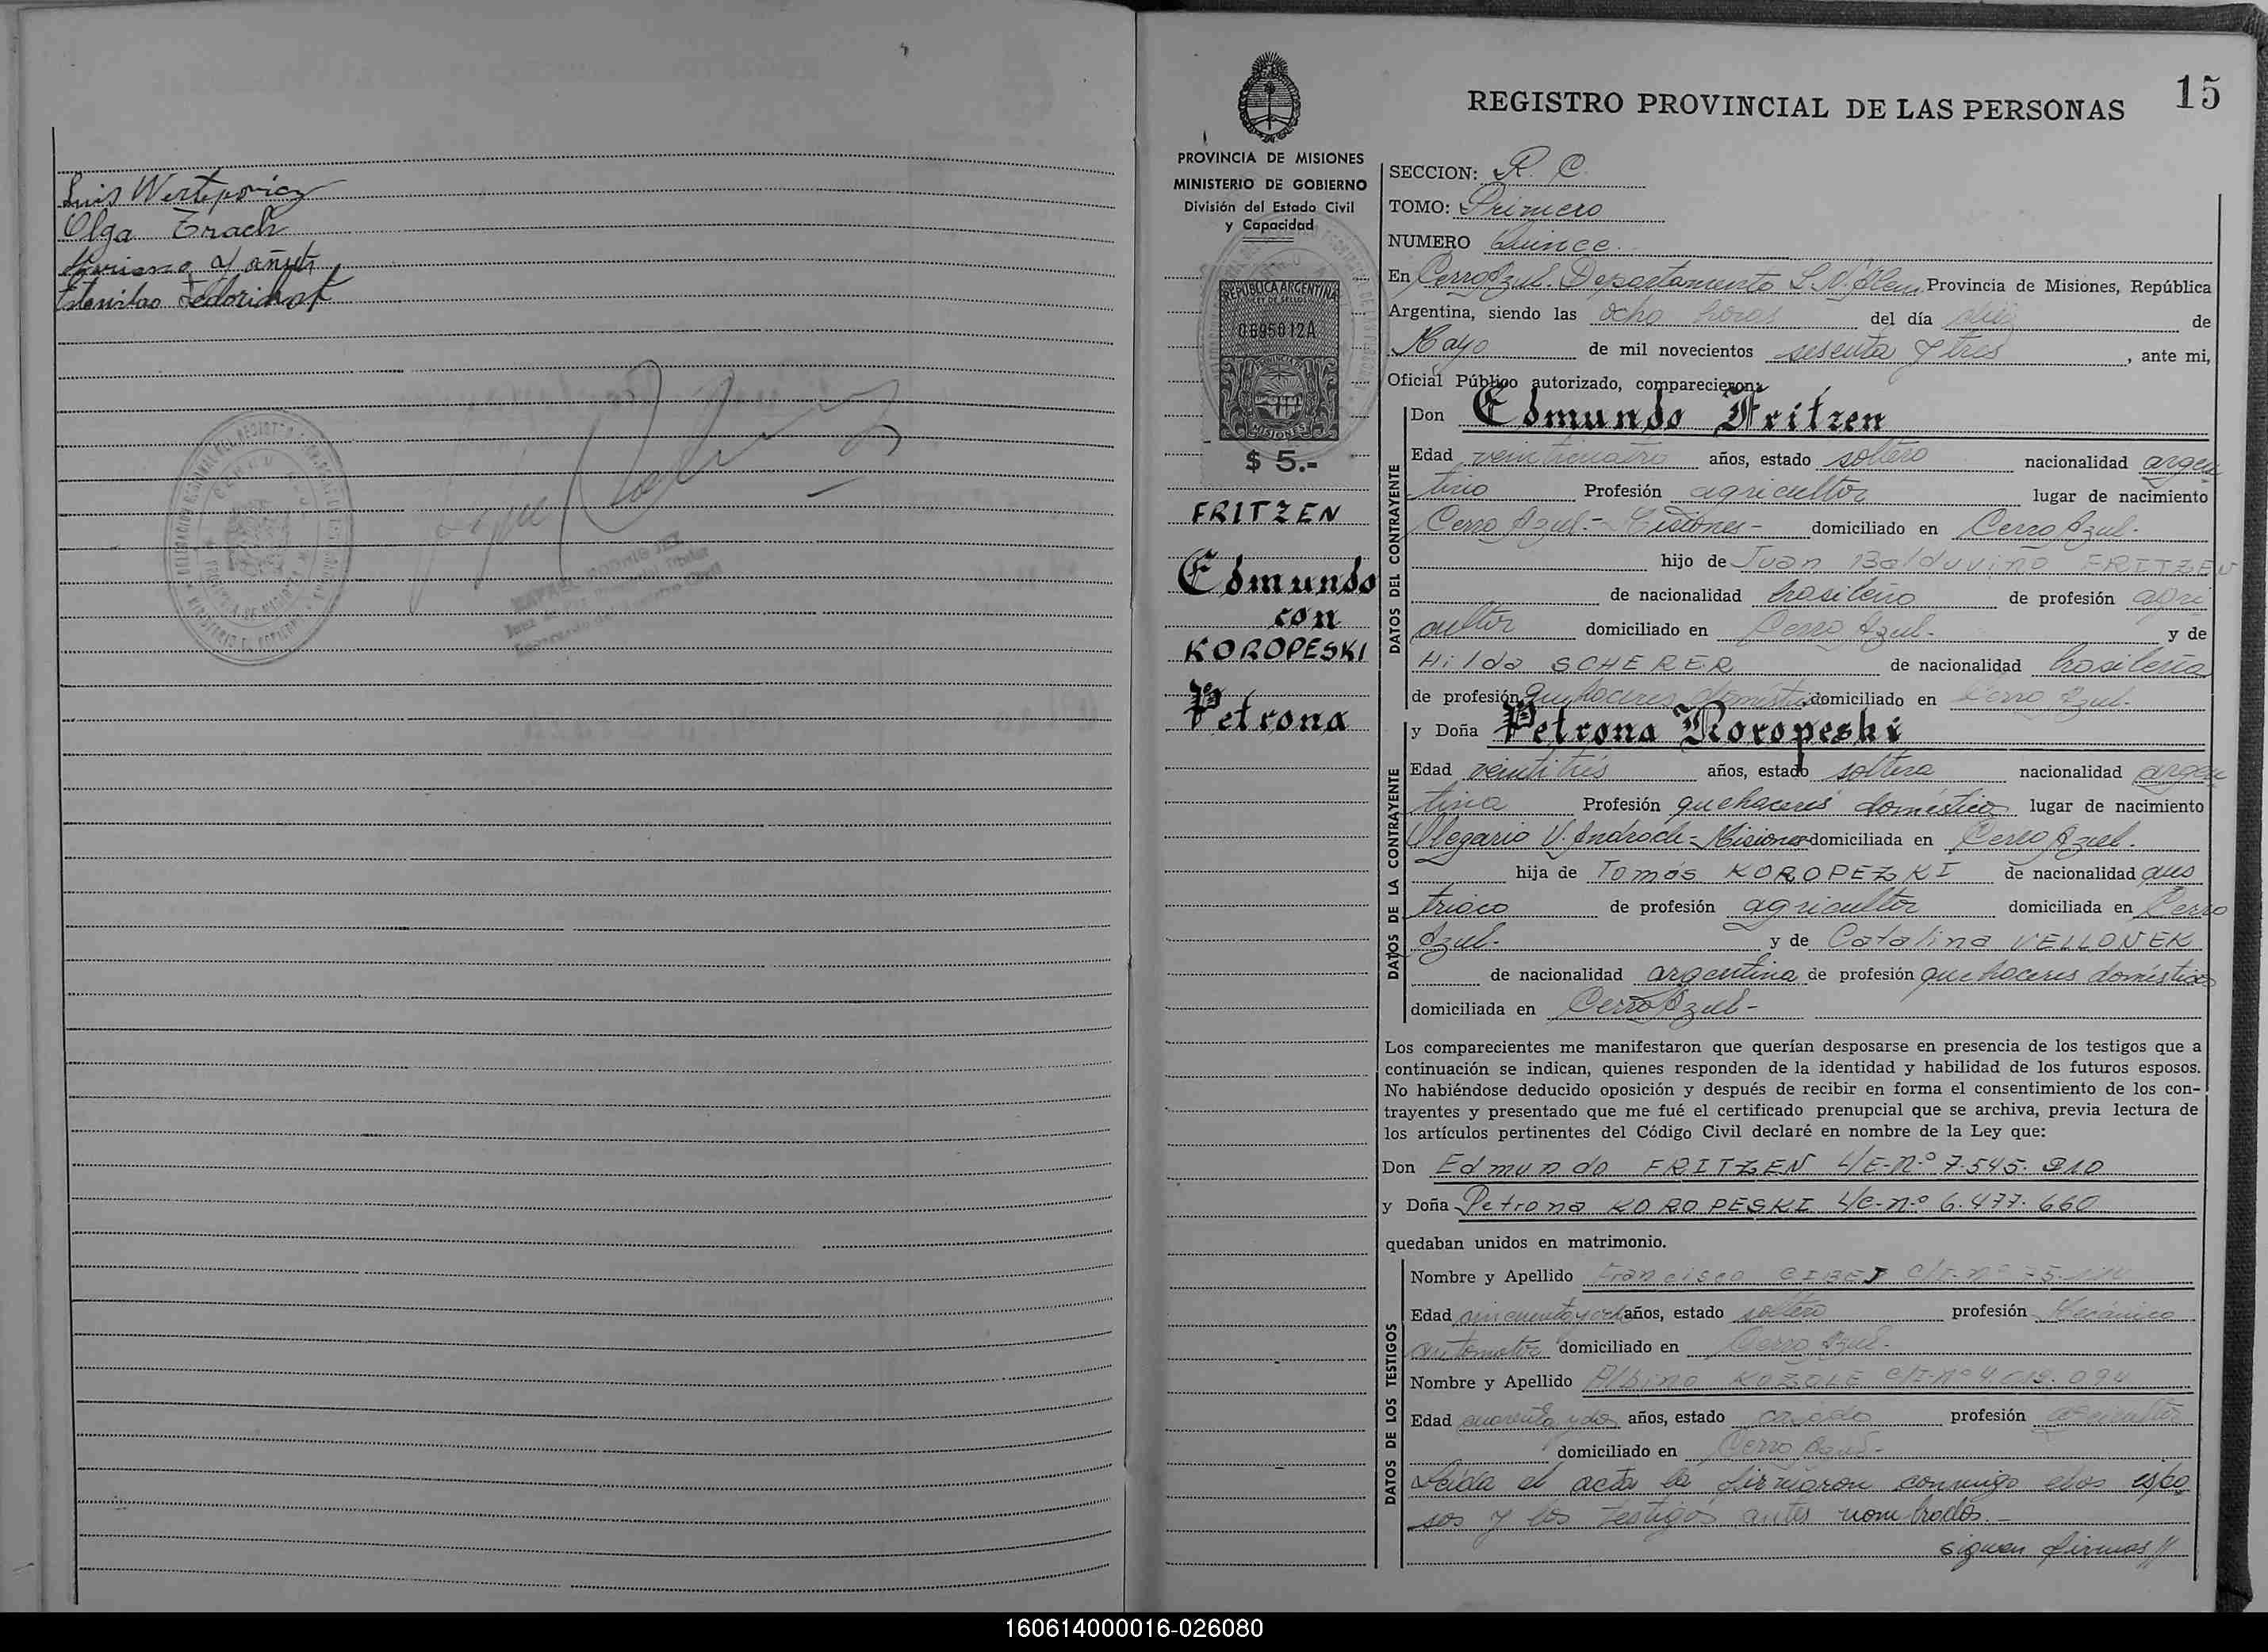 Luis Wertepovicz
Olga Trach
Estanislao
RAFAEL RODRIGUEZ
15
REGISTRO PROVINCIAL DE LAS PERSONAS
PROVINCIA DE MISIONES
MINISTERIO DE GOBIERNO
División del Estado Civil
y Capacidad
REPUBLICA ARGENTINA
LEY DE SELLOS
0695012A
MISIONES
$ 5.-
FRITZEN
Edmundo
con
KOROPESKI
Petrona
SECCION: R. C.
TOMO: Primero
NUMERO Quince.
En Cerro Azul. Departamento L. N. Alem, Provincia de Misiones, República
Argentina, siendo las ocho horas del día diez de
Mayo de mil novecientos sesenta y tres, ante mi,
Oficial Público autorizado, comparecieron:
DATOS DEL CONTRAYENTE
Don Edmundo Fritzen
Edad veinticuatro años, estado soltero nacionalidad argen
tino Profesión agricultor lugar de nacimiento
Cerro Azul.- Misiones- domiciliado en Cerro Azul.
hijo de Juan Balduvino FRITZEN
de nacionalidad brasileño de profesión agri
cultor domiciliado en Cerro Azul.- y de
Hilda SCHERER de nacionalidad brasileña
de profesión quehaceres domésticos domiciliado en Cerro Azul.-
DATOS DE LA CONTRAYENTE
y Doña Petrona Koropeski
Edad veintitrés años, estado soltera nacionalidad argen
tina Profesión quehaceres domésticos lugar de nacimiento
Olegario V. Andrade - Misiones- domiciliada en Cerro Azul.-
hija de Tomás KOROPEZKI de nacionalidad aus
triaco de profesión agricultor domiciliada en Cerro
Azul.- y de Catalina VELLONEK
de nacionalidad argentina de profesión quehaceres domésticos
domiciliada en Cerro Azul-
Los comparecientes me manifestaron que querían desposarse en presencia de los testigos que a
continuación se indican, quienes responden de la identidad y habilidad de los futuros esposos.
No habiéndose deducido oposición y después de recibir en forma el consentimiento de los con-
trayentes y presentado que me fué el certificado prenupcial que se archiva, previa lectura de
los artículos pertinentes del Código Civil declaré en nombre de la Ley que:
Don Edmundo FRITZEN L/E-Nº 7.545.910
y Doña Petrona KOROPESKI L/C-nº 6.477.660
quedaban unidos en matrimonio.
DATOS DE LOS TESTIGOS
Nombre y Apellido Francisco CIBEJ C/I-nº
Edad cincuenta y ocho años, estado soltero profesión Mecánico
automotor domiciliado en Cerro Azul.-
Nombre y Apellido Albino KOZOLE C/I-Nº 4.012.094
Edad cuarenta y dos años, estado casado profesión agricultor
domiciliado en Cerro Azul.-
Leida el acta la firmaron conmigo ellos espo
sos y los testigos antes nombrados.-
siguen firmas//
160614000016-026080